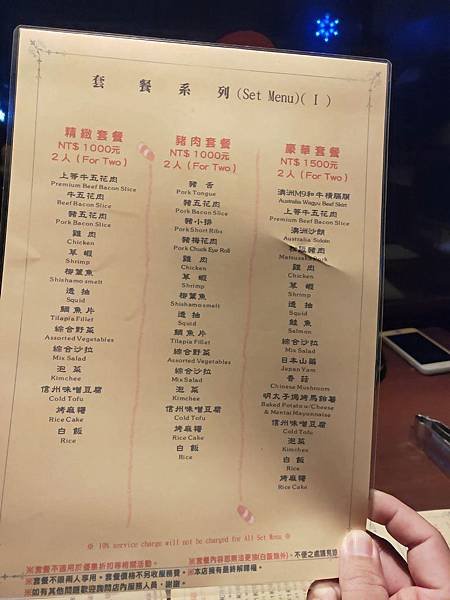 套 餐 系 列 (Set Menu)( I )
精緻套餐
NT$ 1000元
2人 (For Two)
上等牛五花肉
Premium Beef Bacon Slice
牛五花肉
Beef Bacon Slice
豬五花肉
Pork Bacon Slice
雞 肉
Chicken
草 蝦
Shrimp
柳葉魚
Shishamo smelt
透 抽
Squid
鯛魚片
Tilapia Fillet
綜合野菜
Assorted Vegetables
綜合沙拉
Mix Salad
泡 菜
Kimchee
信州味噌豆腐
Cold Tofu
烤麻糬
Rice Cake
白 飯
Rice
豬肉套餐
NT$ 1000元
2人 (For Two)
豬 舌
Pork Tongue
豬五花肉
Pork Bacon Slice
豬小排
Pork Short Ribs
豬梅花肉
Pork Chuck Eye Roll
雞 肉
Chicken
草 蝦
Shrimp
柳葉魚
Shishamo smelt
透 抽
Squid
鯛魚片
Tilapia Fillet
綜合野菜
Assorted Vegetables
綜合沙拉
Mix Salad
泡 菜
Kimchee
信州味噌豆腐
Cold Tofu
烤麻糬
Rice Cake
白 飯
Rice
豪華套餐
NT$ 1500元
2人 (For Two)
澳洲M9和牛橫膈膜
Australia Wagyu Beef Skirt
上等牛五花肉
Premium Beef Bacon Slice
澳洲沙朗
Australia Sirloin
豬肉
Matsusaka Pork
雞 肉
Chicken
草 蝦
Shrimp
透 抽
Squid
鮭 魚
Salmon
綜合沙拉
Mix Salad
日本山藥
Japan Yam
香 菇
Chinese Mushroom
明太子焗烤馬鈴薯
Baked Potato w/Cheese
& Mentai Mayonnaise
信州味噌豆腐
Cold Tofu
泡 菜
Kimchee
白 飯
Rice
烤麻糬
Rice Cake
※ 10% service charge will not be charged for All Set Menu ※
※套餐不適用於優惠折扣等相關活動。
※套餐不限兩人享用。套餐價格不另收服務費。
※如有其他問題歡迎詢問店內服務人員，謝謝。
※套餐內容恕無法更換(白飯除外)。不便之處請見諒
※本店擁有最終解釋權。